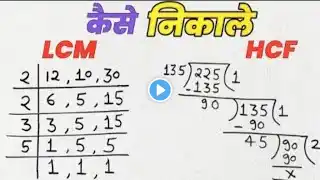 कैसे निकाले
LCM
HCF
2 | 12, 10, 30
2 | 6, 5, 15
3 | 3, 5, 15
5 | 1, 5, 5
1, 1, 1
135 ) 225 ( 1
-135
90 ) 135 ( 1
- 90
45 ) 90 ( 2
90
x